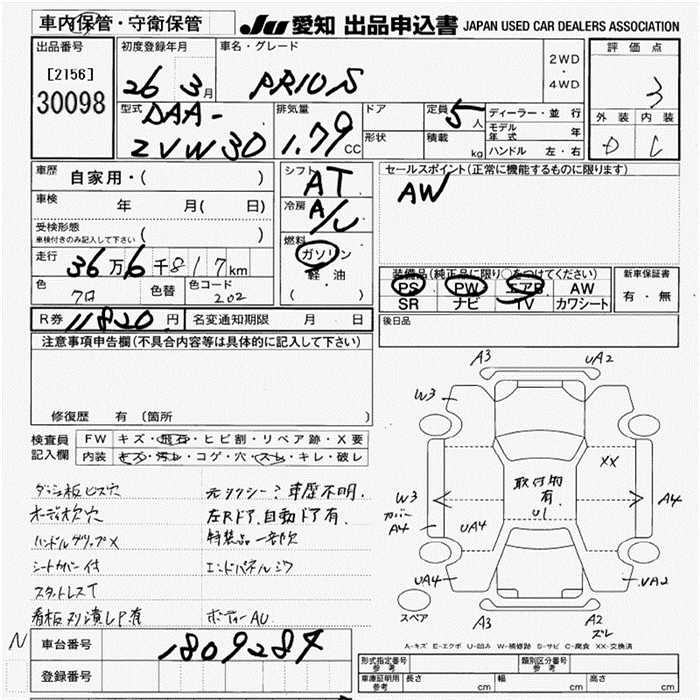 車内保管・守衛保管
JU 愛知 出品申込書 JAPAN USED CAR DEALERS ASSOCIATION
出品番号
[2156]
30098
初度登録年月
26 3月
車名・グレード
PRIUS
2WD
・
4WD
評価点
3
外装 内装
D C
型式
DAA-
ZVW30
排気量
1.79CC
ドア
形状
定員
5人
積載
kg
ディーラー・並行
モデル年式 年
ハンドル 左・右
車歴 自家用・( )
車検 年 月( 日)
受検形態
車検付きのみ記入して下さい ( )
走行 36万6千817km
色 クロ 色替 色コード 202
シフト
AT
冷房
A/C
燃料
ガソリン
軽油
( ・ )
セールスポイント(正常に機能するものに限ります)
AW
装備品(純正品に限り○をつけてください)
PS PW エアB AW
SR ナビ TV カワシート
新車保証書
有・無
R券 11820円 名変通知期限 月 日
後日品
注意事項申告欄(不具合内容等は具体的に記入して下さい)
修復歴 有 (箇所
検査員
記入欄
FW キズ・飛石・ヒビ割・リペア跡・X要
内装 キズ・汚レ・コゲ・穴・スレ・キレ・破レ
ダッシュ板ビス穴 元タクシー?車歴不明.
オーディオ欠穴 左Rドア.自動ドア有.
ハンドルグリップX 特装品一部欠
シートカバー付 エンドパネルシワ
スタットレスT
看板ヌリ潰しP有 ボディーAU
A3 UA2
W3
XX
取付物
有
U1
W3
カバー
A4
UA4
A4
UA4
UA2
スペア
A3 A2
ズレ
A-キズ E-エクボ U-凹み W-補修跡 S-サビ C-腐食 XX-交換済
N
車台番号 1809284
登録番号
型式指定番号
参考
類別区分番号
参考
車庫証明用
参考
長さ cm 幅 cm 高さ cm